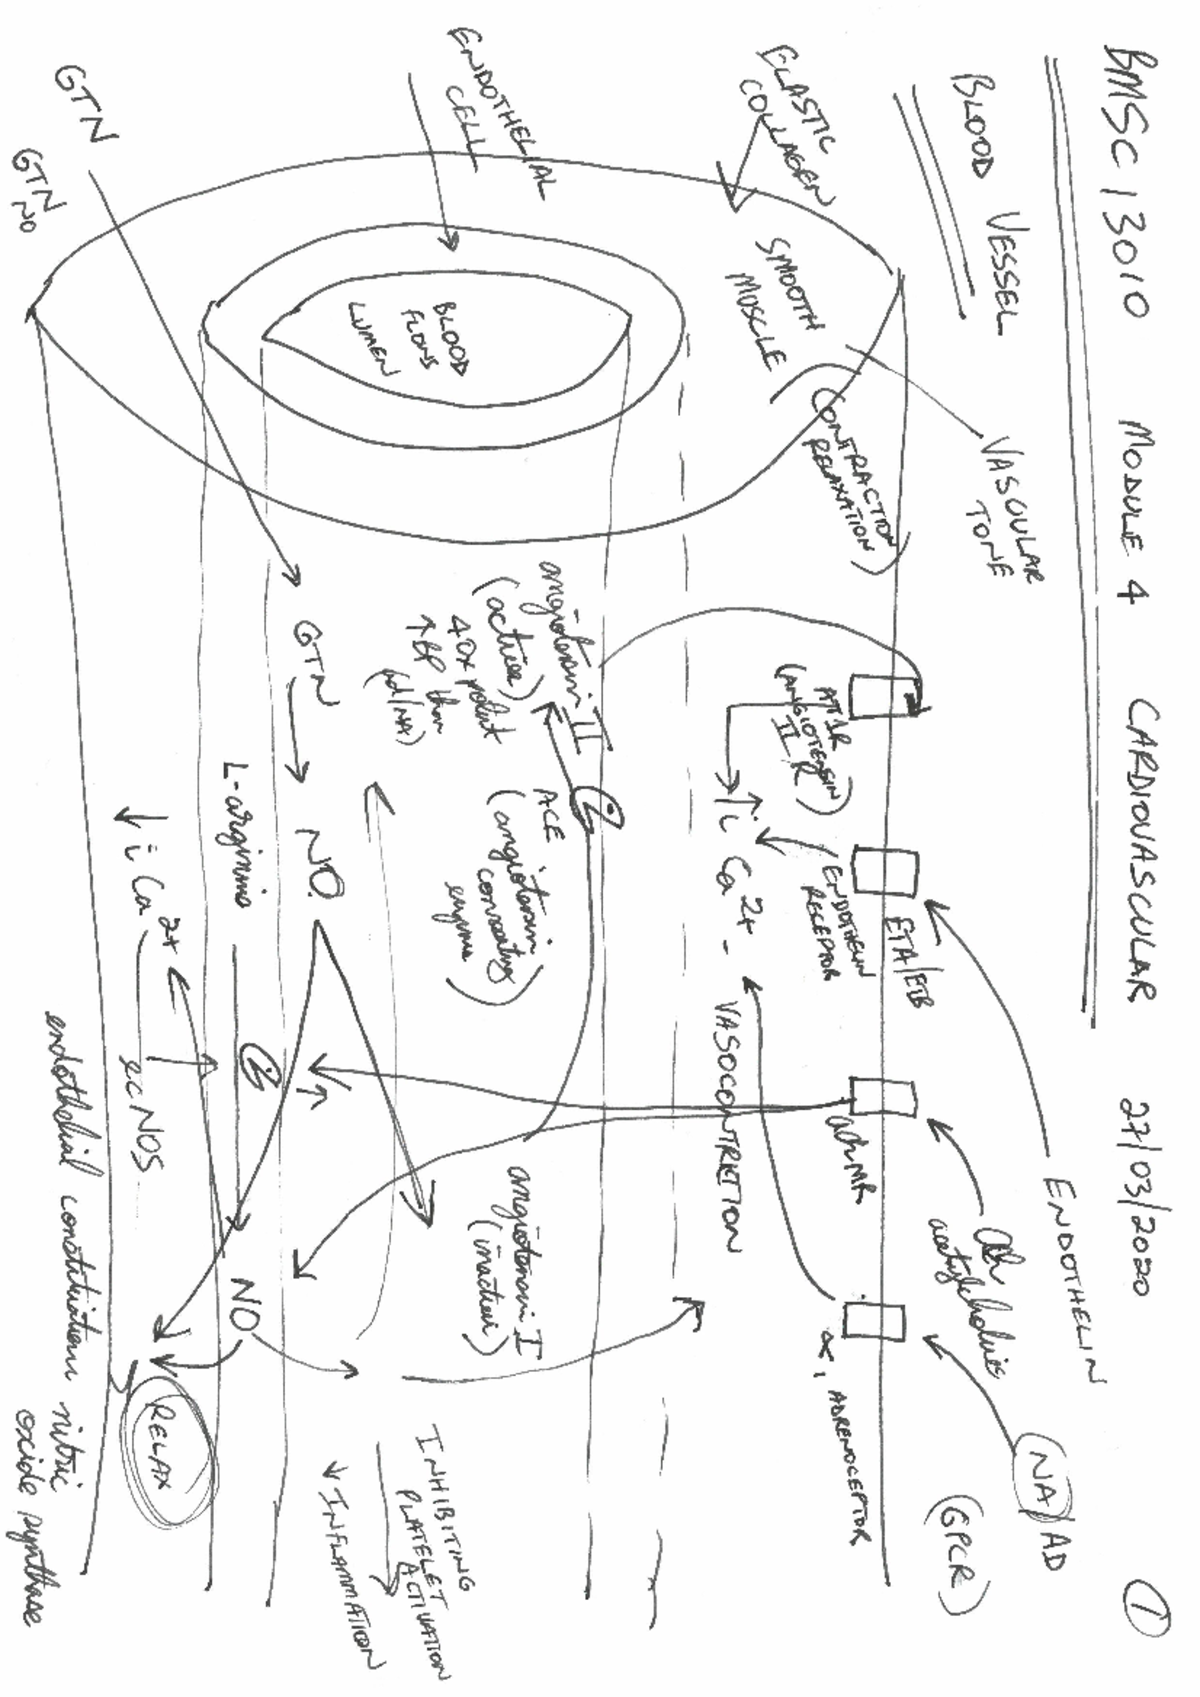 BMSC 13010 MODULE 4 CARDIOVASCULAR 27/03/2020
1
BLOOD VESSEL
VASCULAR
TONE
ENDOTHELIN
Ach
acetylcholine
NA/AD
(GPCR)
ELASTIC
COLLAGEN
SMOOTH
MUSCLE
(CONTRACTION
RELAXATION)
AT1R
(ANGIOTENSIN
II R)
ETA/ETB
ENDOTHELIN
RECEPTOR
achMR
α1 ADRENOCEPTOR
↑i Ca2+ - VASOCONTRICTION
ENDOTHELIAL
CELL
BLOOD
FLOWS
LUMEN
angiotensin II
(active)
40x potent
↑BP than
(ad/NA)
ACE
(angiotensin
converting
enzyme)
angiotensin I
(inactive)
INHIBITING
PLATELET
ACTIVATION
↓ INFLAMMATION
GTN
GTN
NO
GTN → NO
L-arginine
NO
↓i Ca2+
ecNOS
RELAX
endothelial constitutive nitric
oxide synthase